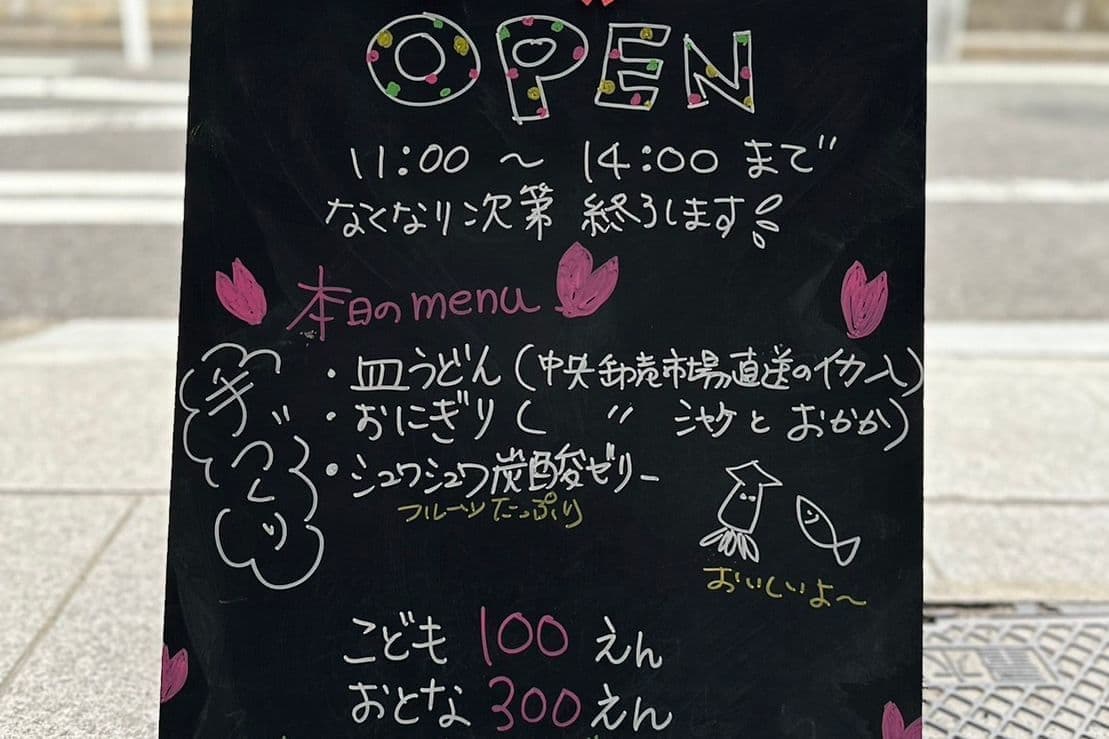 OPEN
11:00 〜 14:00 まで
なくなり次第 終了します
本日のmenu
手づくり
・皿うどん(中央卸売市場直送のイカ入)
・おにぎり( 〃 シャケとおかか)
・シュワシュワ炭酸ゼリー
フルーツたっぷり
おいしいよ〜
こども 100えん
おとな 300えん